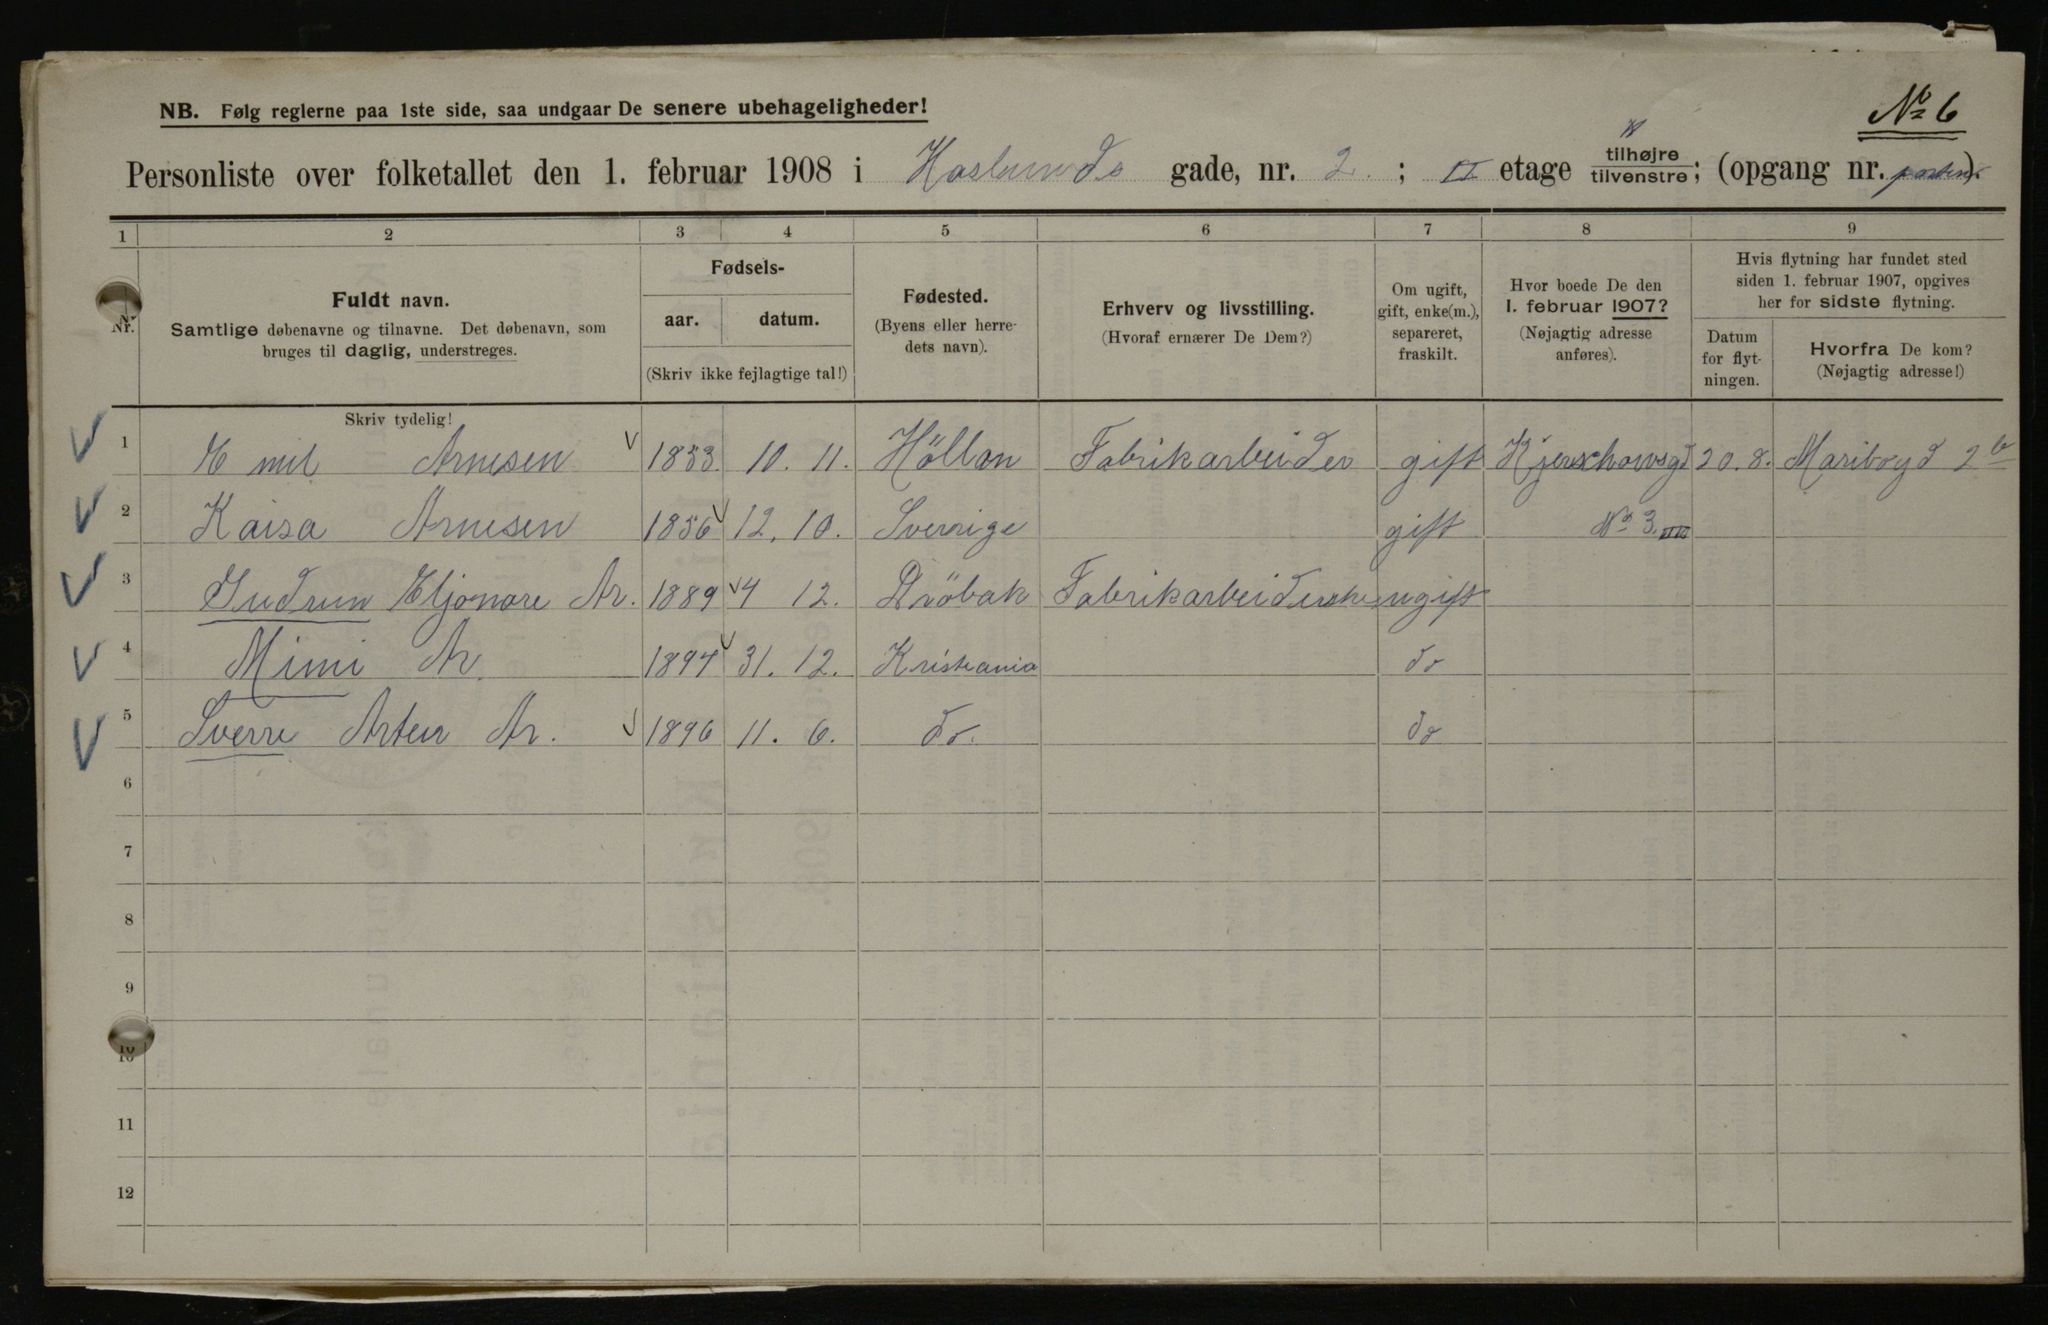 No 6
NB. Følg reglerne paa 1ste side, saa undgaar De senere ubehageligheder!
Personliste over folketallet den 1. februar 1908 i Haslunds gade, nr. 2. ; II etage tilhøjre tilvenstre; (opgang nr. porten).
1 2 3 4 5 6 7 8 9
Nr.
Fuldt navn.
Samtlige døbenavne og tilnavne. Det døbenavn, som
bruges til daglig, understreges.
Fødsels-
aar. datum.
(Skriv ikke fejlagtige tal!)
Fødested.
(Byens eller herre-
dets navn).
Erhverv og livsstilling.
(Hvoraf ernærer De Dem?)
Om ugift,
gift, enke(m.),
separeret,
fraskilt.
Hvor boede De den
1. februar 1907?
(Nøjagtig adresse
anføres).
Hvis flytning har fundet sted
siden 1. februar 1907, opgives
her for sidste flytning.
Datum
for flyt-
ningen.
Hvorfra De kom?
(Nøjagtig adresse!)
Skriv tydelig!
1 Emil Arnesen 1853 10. 11. Höllan Fabrikarbeider gift Kjerschowsgd 20.8. Maribogd 2b
2 Kaisa Arnesen 1856 12. 10. Sverrige gift No 3. III
3 Gudrun Eljonore Ar. 1889 4 12. Dröbak Fabrikarbeiderske ugift
4 Mimi Ar. 1894 31. 12. Kristiania do
5 Sverre Artur Ar. 1896 11. 6. do. do
6
7
8
9
10
11
12